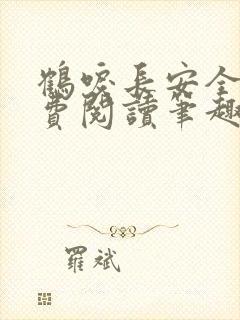 鶴唳長安全
費閱讀筆趣
羅斌